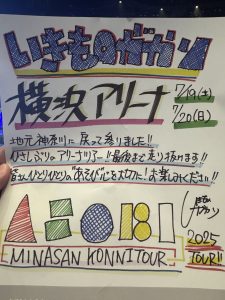 いきものがかり
横浜アリーナ
7/19(土)
7/20(日)
地元神奈川に戻って参りました!!
ひさしぶりのアリーナツアー!!最後まで走り抜けます!!
皆さんひとりひとりの"あそび"心を大切に!お楽しみください!!
ASOBI
いきものがかり
2025
TOUR!!
MINASAN KONNITOUR